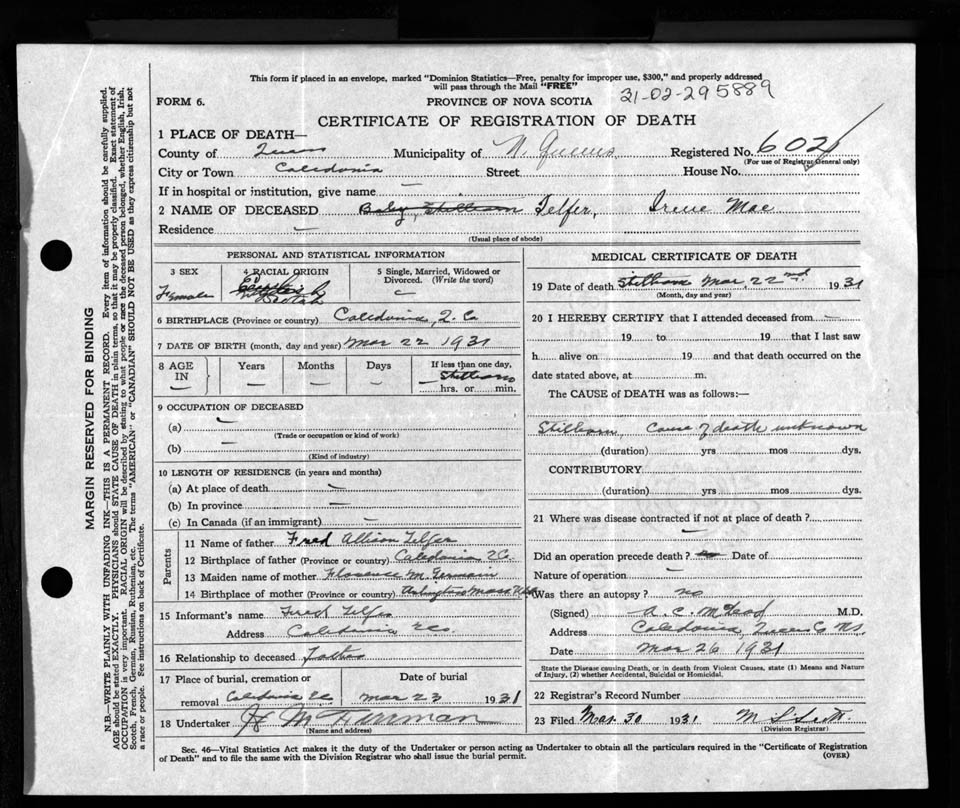 This form if placed in an envelope, marked "Dominion Statistics—Free, penalty for improper use, $300," and properly addressed
will pass through the Mail "FREE"
31-02-295889
FORM 6. PROVINCE OF NOVA SCOTIA
CERTIFICATE OF REGISTRATION OF DEATH
1 PLACE OF DEATH—
County of Queens Municipality of N. Queens Registered No. 602
(For use of Registrar General only)
City or Town Caledonia Street House No.
If in hospital or institution, give name —
2 NAME OF DECEASED Baby, Stillborn Telfer, Irene Mae
Residence —
(Usual place of abode)
PERSONAL AND STATISTICAL INFORMATION
3 SEX 4 RACIAL ORIGIN 5 Single, Married, Widowed or Divorced. (Write the word)
Female Scotch
6 BIRTHPLACE (Province or country) Caledonia, Q. Co
7 DATE OF BIRTH (month, day and year) Mar 22 1931
8 AGE IN Years Months Days If less than one day,
— — — Stillborn
hrs. or min.
9 OCCUPATION OF DECEASED
(a) —
(Trade or occupation or kind of work)
(b) —
(Kind of industry)
10 LENGTH OF RESIDENCE (in years and months)
(a) At place of death —
(b) In province —
(c) In Canada (if an immigrant) —
Parents
11 Name of father Fred Allison Telfer
12 Birthplace of father (Province or country) Caledonia Q Co.
13 Maiden name of mother Florence M. Germain
14 Birthplace of mother (Province or country) Arlington Mass USA
15 Informant's name Fred Telfer
Address Caledonia Q Co.
16 Relationship to deceased Father
17 Place of burial, cremation or removal Date of burial
Caledonia Q C Mar 23 1931
18 Undertaker
(Name and address)
MEDICAL CERTIFICATE OF DEATH
19 Date of death Stillborn Mar, 22nd 1931
(Month, day and year)
20 I HEREBY CERTIFY that I attended deceased from —
19 to 19 that I last saw
h alive on 19 and that death occurred on the
date stated above, at m.
The CAUSE of DEATH was as follows:—
Stillborn, Cause of death unknown
(duration) yrs mos dys.
CONTRIBUTORY
(duration) yrs mos dys.
21 Where was disease contracted if not at place of death?
—
Did an operation precede death? no Date of
Nature of operation —
Was there an autopsy? no
(Signed) A. C. McLeod M.D.
Address Caledonia, Queens Co NS.
Date Mar 26 1931
State the Disease causing Death, or in death from Violent Causes, state (1) Means and Nature
of Injury, (2) whether Accidental, Suicidal or Homicidal.
22 Registrar's Record Number
23 Filed Mar. 30 1931
(Division Registrar)
Sec. 46—Vital Statistics Act makes it the duty of the Undertaker or person acting as Undertaker to obtain all the particulars required in the "Certificate of Registration
of Death" and to file the same with the Division Registrar who shall issue the burial permit. (OVER)
MARGIN RESERVED FOR BINDING
N.B.—WRITE PLAINLY WITH UNFADING INK—THIS IS A PERMANENT RECORD. Every item of information should be carefully supplied.
AGE should be stated EXACTLY. PHYSICIANS should STATE CAUSE OF DEATH in plain terms, so that it may be properly classified. Exact statement of
OCCUPATION is very important. RACIAL ORIGIN will be described by stating to what people or race the deceased person belonged, whether English, Irish,
Scotch, French, German, Russian, Ruthenian, etc. The terms "AMERICAN" or "CANADIAN" SHOULD NOT BE USED as they express citizenship but not
a race or people. See instructions on back of Certificate.